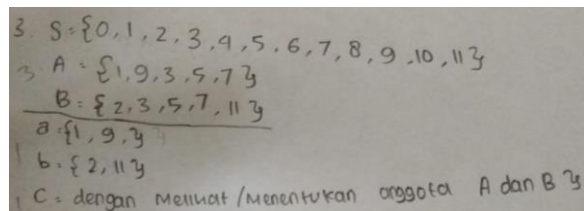 3. S = {0, 1, 2, 3, 4, 5, 6, 7, 8, 9, 10, 11}
3. A = {1, 9, 3, 5, 7}
B = {2, 3, 5, 7, 11}
a = {1, 9, }
b = {2, 11}
C = dengan melihat / menentukan anggota A dan B }